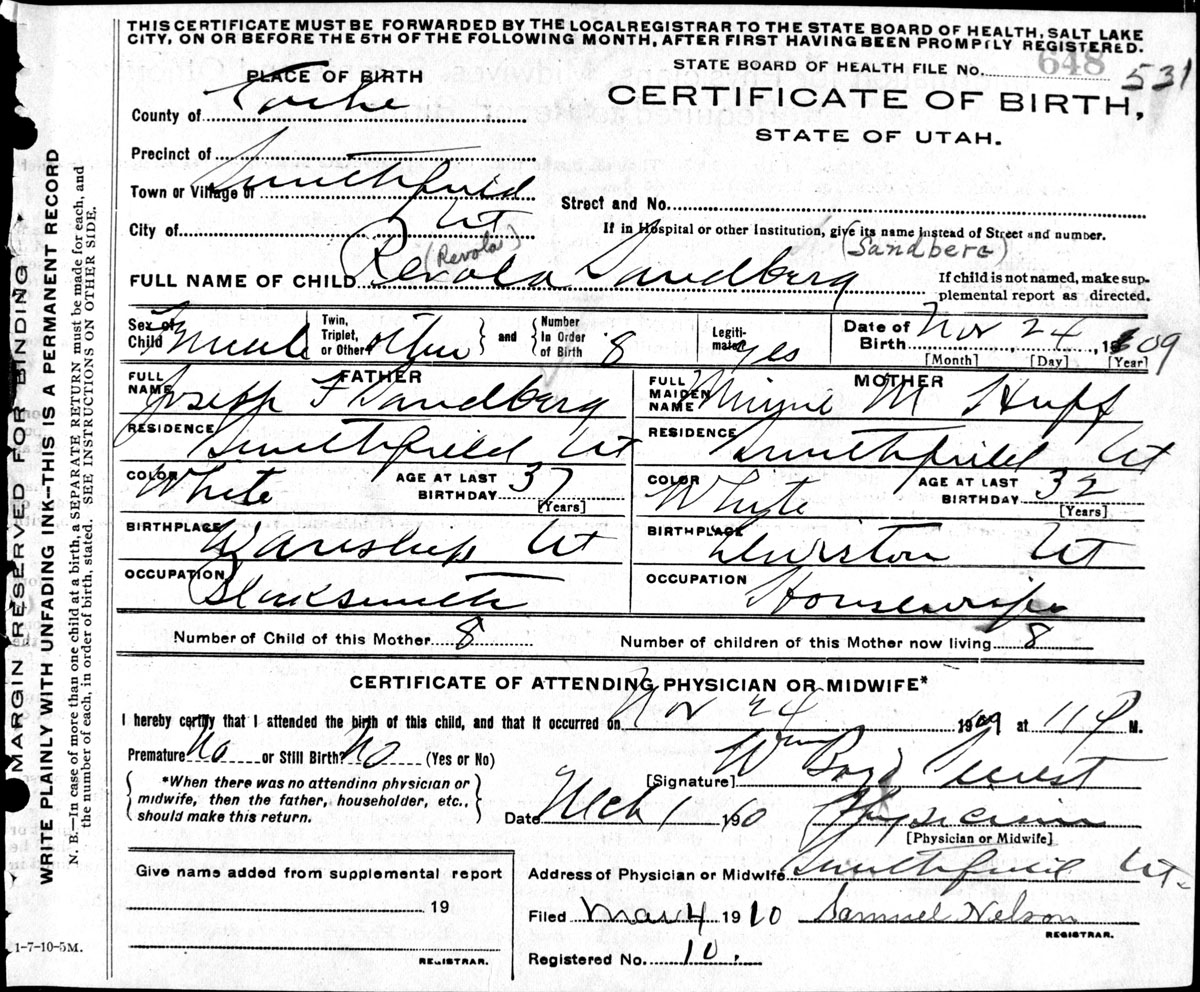 THIS CERTIFICATE MUST BE FORWARDED BY THE LOCAL REGISTRAR TO THE STATE BOARD OF HEALTH, SALT LAKE
CITY, ON OR BEFORE THE 5TH OF THE FOLLOWING MONTH, AFTER FIRST HAVING BEEN PROMPTLY REGISTERED.
STATE BOARD OF HEALTH FILE No. 648 531
PLACE OF BIRTH
CERTIFICATE OF BIRTH,
STATE OF UTAH.
County of Cache
Precinct of
Town or Village of Smithfield
Street and No.
City of Ut
If in Hospital or other Institution, give its name instead of Street and number.
(Revola) (Sandberg)
FULL NAME OF CHILD Revola Sandberg
If child is not named, make sup-
plemental report as directed.
Sex of Child Female
Twin, Triplet, or Other other } and { Number In Order of Birth 8
Legiti-mate? yes
Date of Birth Nov 24, 1909
[Month] [Day] [Year]
FATHER
FULL NAME Joseph F Sandberg
RESIDENCE Smithfield Ut
COLOR White AGE AT LAST BIRTHDAY 37 [Years]
BIRTHPLACE Wanship Ut
OCCUPATION Blacksmith
MOTHER
FULL MAIDEN NAME M Huff
RESIDENCE Smithfield Ut
COLOR Whyte AGE AT LAST BIRTHDAY 32 [Years]
BIRTHPLACE Lewiston Ut
OCCUPATION Housewife
Number of Child of this Mother 8
Number of children of this Mother now living 8
CERTIFICATE OF ATTENDING PHYSICIAN OR MIDWIFE*
I hereby certify that I attended the birth of this child, and that it occurred on Nov 24 1909 at 11 P M.
Premature No or Still Birth? No (Yes or No)
*When there was no attending physician or
midwife, then the father, householder, etc.,
should make this return.
[Signature] Wm
Date Mch 1 1910 Physician
[Physician or Midwife]
Address of Physician or Midwife Smithfield Ut.
Filed Mar 4 1910 Samuel Nelson
REGISTRAR.
Registered No. 10.
Give name added from supplemental report
19
REGISTRAR.
1-7-10-5M.
MARGIN RESERVED FOR BINDING
WRITE PLAINLY WITH UNFADING INK—THIS IS A PERMANENT RECORD
N. B.—In case of more than one child at a birth, a SEPARATE RETURN must be made for each, and
the number of each, in order of birth, stated. SEE INSTRUCTIONS ON OTHER SIDE.